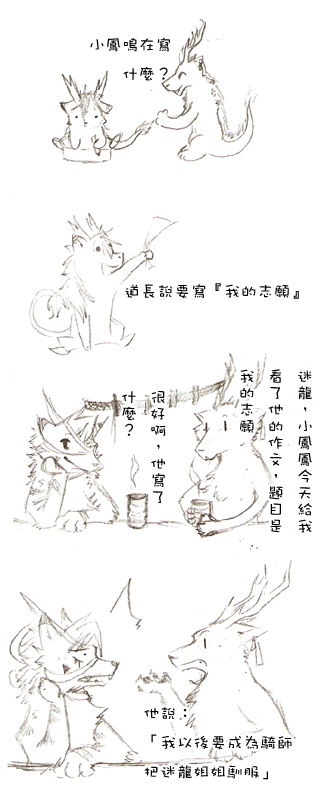 小鳳鳴在寫
什麼？
道長說要寫『我的志願』
迷龍，小鳳鳳今天給我
看了他的作文，題目是
我的志願
很好啊，他寫了
什麼？
他說：
「我以後要成為騎師
把迷龍姐姐馴服」